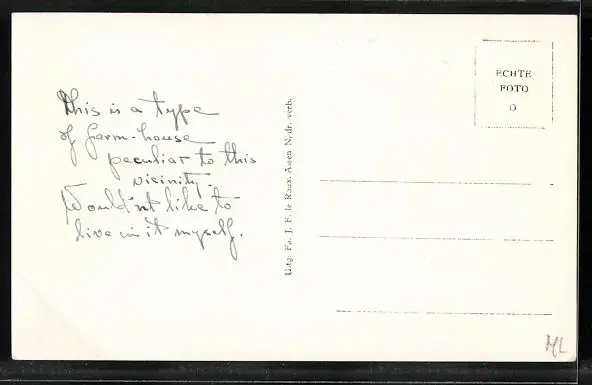 This is a type
of farm-house
peculiar to this
vicinity.
Wouldn't like to
live in it myself.
Uitg: Fa. J. F. le Roux, Assen N. dr. verb.
ECHTE
FOTO
O
HL